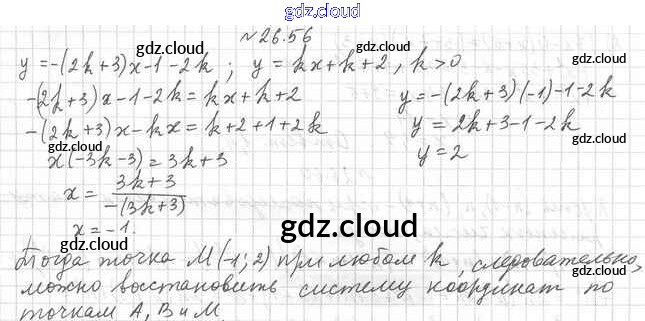 gdz.cloud
№ 26.56
gdz.cloud gdz.cloud
y = -(2k+3)x-1-2k ; y = kx+k+2, k>0
gdz.cloud gdz.cloud
-(2k+3)x-1-2k = kx+k+2
y = -(2k+3)(-1)-1-2k
-(2k+3)x-kx = k+2+1+2k
y = 2k+3-1-2k
gdz.cloud gdz.cloud
x(-3k-3) = 3k+3
y = 2
x = 3k+3 / -(3k+3)
gdz.cloud
x = -1.
gdz.cloud
gdz.cloud gdz.cloud
Тогда точка M(-1; 2) при любом k, следовательно,
можно восстановить систему координат по
точкам A, B и M
gdz.cloud